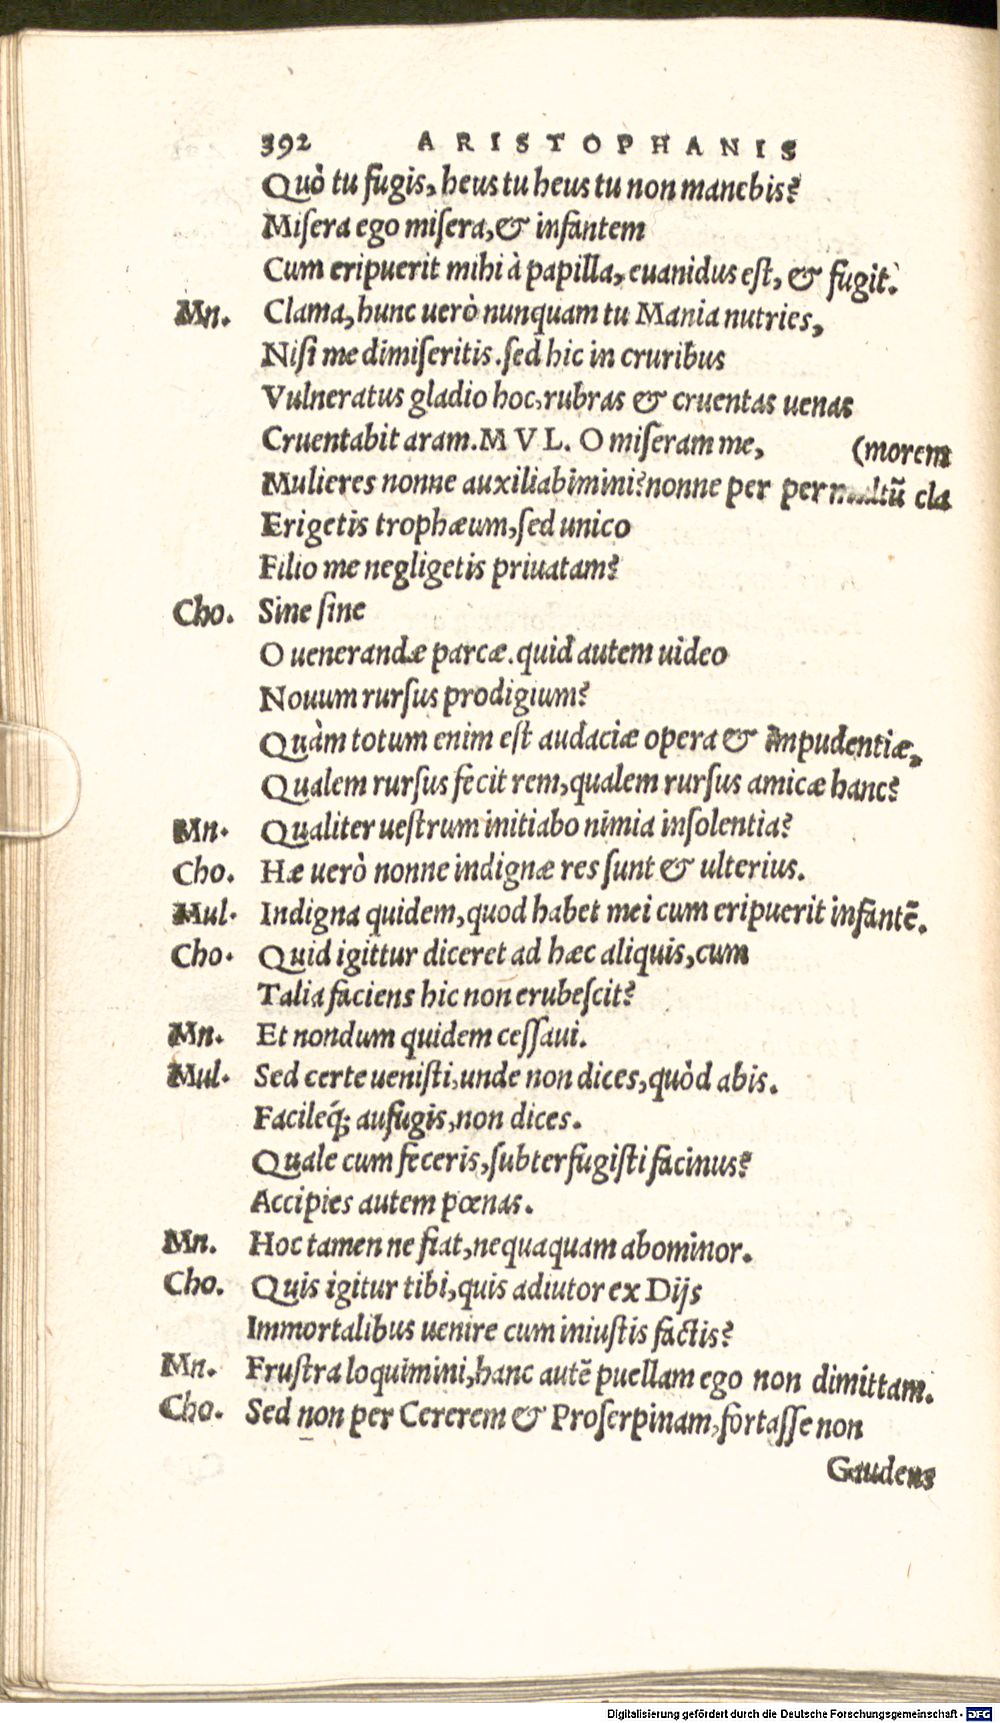 392 ARISTOPHANIS
Quò tu fugis, heus tu heus tu non manebis?
Misera ego misera, & infantem
Cum eripuerit mihi à papilla, euanidus est, & fugit.
Mn. Clama, hunc uerò nunquam tu Mania nutries,
Nisi me dimiseritis. sed hic in cruribus
Vulneratus gladio hoc, rubras & cruentas uenas
Cruentabit aram. MVL. O miseram me, (morem
Mulieres nonne auxiliabimini? nonne per per multũ cla
Erigetis trophæum, sed unico
Filio me negligetis priuatam?
Cho. Sine sine
O uenerandæ parcæ. quid autem uideo
Nouum rursus prodigium?
Quàm totum enim est audaciæ opera & impudentiæ,
Qualem rursus fecit rem, qualem rursus amicæ hanc?
Mn. Qualiter uestrum initiabo nimia insolentia?
Cho. Hæ uerò nonne indignæ res sunt & ulterius.
Mul. Indigna quidem, quod habet mei cum eripuerit infantẽ.
Cho. Quid igittur diceret ad hæc aliquis, cum
Talia faciens hic non erubescit?
Mn. Et nondum quidem cessaui.
Mul. Sed certe uenisti, unde non dices, quòd abis.
Facileq́; aufugis, non dices.
Quale cum feceris, subterfugisti facinus?
Accipies autem pœnas.
Mn. Hoc tamen ne fiat, nequaquam abominor.
Cho. Quis igitur tibi, quis adiutor ex Dijs
Immortalibus uenire cum iniustis factis?
Mn. Frustra loquimini, hanc autẽ puellam ego non dimittam.
Cho. Sed non per Cererem & Proserpinam, fortasse non
Gaudens
Digitalisierung gefördert durch die Deutsche Forschungsgemeinschaft - DFG